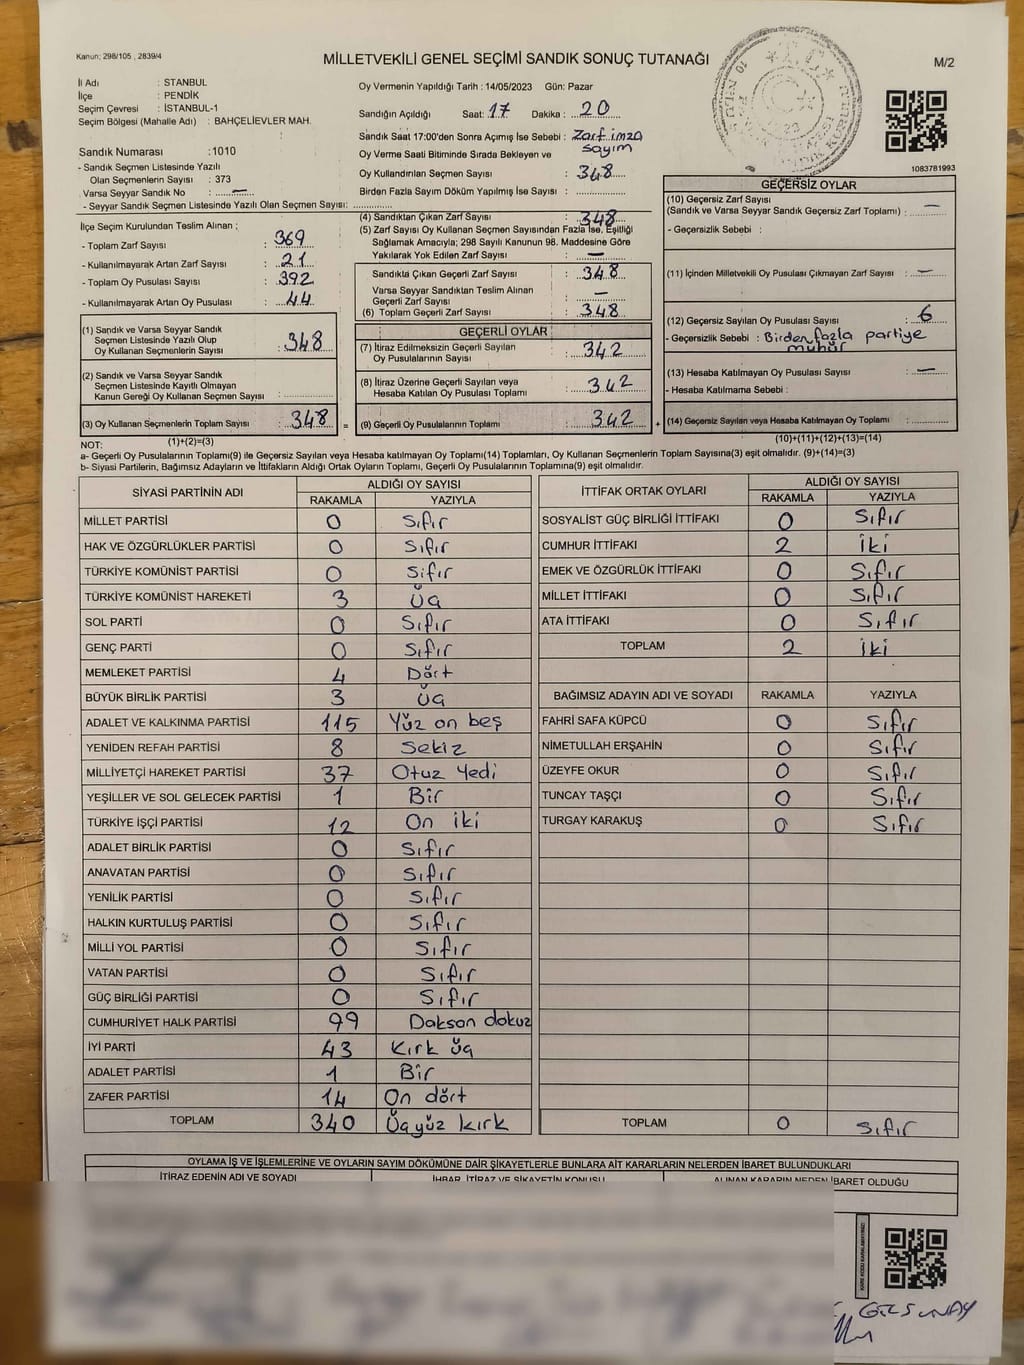 Kanun; 298/105 , 2839/4
MİLLETVEKİLİ GENEL SEÇİMİ SANDIK SONUÇ TUTANAĞI
M/2
İl Adı : STANBUL
İlçe : PENDİK
Seçim Çevresi : İSTANBUL-1
Seçim Bölgesi (Mahalle Adı) : BAHÇELİEVLER MAH.
Oy Vermenin Yapıldığı Tarih : 14/05/2023 Gün: Pazar
Sandığın Açıldığı Saat: 17 Dakika : 20
Sandık Saat 17:00'den Sonra Açımış İse Sebebi : Zarf imza sayım
Oy Verme Saati Bitiminde Sırada Bekleyen ve
Oy Kullandırılan Seçmen Sayısı : 348
Birden Fazla Sayım Döküm Yapılmış İse Sayısı :
1083781993
Sandık Numarası : 1010
- Sandık Seçmen Listesinde Yazılı
Olan Seçmenlerin Sayısı : 373
Varsa Seyyar Sandık No : —
- Seyyar Sandık Seçmen Listesinde Yazılı Olan Seçmen Sayısı:
İlçe Seçim Kurulundan Teslim Alınan ;
- Toplam Zarf Sayısı : 369
- Kullanılmayarak Artan Zarf Sayısı : 21
- Toplam Oy Pusulası Sayısı : 392
- Kullanılmayarak Artan Oy Pusulası : 44
(1) Sandık ve Varsa Seyyar Sandık
Seçmen Listesinde Yazılı Olup
Oy Kullanan Seçmenlerin Sayısı : 348
(2) Sandık ve Varsa Seyyar Sandık
Seçmen Listesinde Kayıtlı Olmayan
Kanun Gereği Oy Kullanan Seçmen Sayısı :
(3) Oy Kullanan Seçmenlerin Toplam Sayısı : 348
(1)+(2)=(3)
(4) Sandıktan Çıkan Zarf Sayısı : 348
(5) Zarf Sayısı Oy Kullanan Seçmen Sayısından Fazla İse, Eşitliği
Sağlamak Amacıyla; 298 Sayılı Kanunun 98. Maddesine Göre
Yakılarak Yok Edilen Zarf Sayısı : —
Sandıkta Çıkan Geçerli Zarf Sayısı : 348
Varsa Seyyar Sandıktan Teslim Alınan
Geçerli Zarf Sayısı : —
(6) Toplam Geçerli Zarf Sayısı : 348
GEÇERLİ OYLAR
(7) İtiraz Edilmeksizin Geçerli Sayılan
Oy Pusulalarının Sayısı : 342
(8) İtiraz Üzerine Geçerli Sayılan veya
Hesaba Katılan Oy Pusulası Toplamı : 342
(9) Geçerli Oy Pusulalarının Toplamı : 342
GEÇERSİZ OYLAR
(10) Geçersiz Zarf Sayısı
(Sandık ve Varsa Seyyar Sandık Geçersiz Zarf Toplamı) : —
- Geçersizlik Sebebi :
(11) İçinden Milletvekili Oy Pusulası Çıkmayan Zarf Sayısı : —
(12) Geçersiz Sayılan Oy Pusulası Sayısı : 6
- Geçersizlik Sebebi : Birden fazla partiye mühür
(13) Hesaba Katılmayan Oy Pusulası Sayısı : —
- Hesaba Katılmama Sebebi :
(14) Geçersiz Sayılan veya Hesaba Katılmayan Oy Toplamı :
(10)+(11)+(12)+(13)=(14)
NOT:
a- Geçerli Oy Pusulalarının Toplamı(9) ile Geçersiz Sayılan veya Hesaba katılmayan Oy Toplamı(14) Toplamları, Oy Kullanan Seçmenlerin Toplam Sayısına(3) eşit olmalıdır. (9)+(14)=(3)
b- Siyasi Partilerin, Bağımsız Adayların ve İttifakların Aldığı Ortak Oyların Toplamı, Geçerli Oy Pusulalarının Toplamına(9) eşit olmalıdır.
SİYASİ PARTİNİN ADI ALDIĞI OY SAYISI
RAKAMLA YAZIYLA
MİLLET PARTİSİ 0 Sıfır
HAK VE ÖZGÜRLÜKLER PARTİSİ 0 Sıfır
TÜRKİYE KOMÜNİST PARTİSİ 0 Sıfır
TÜRKİYE KOMÜNİST HAREKETİ 3 Üç
SOL PARTİ 0 Sıfır
GENÇ PARTİ 0 Sıfır
MEMLEKET PARTİSİ 4 Dört
BÜYÜK BİRLİK PARTİSİ 3 Üç
ADALET VE KALKINMA PARTİSİ 115 Yüz on beş
YENİDEN REFAH PARTİSİ 8 Sekiz
MİLLİYETÇİ HAREKET PARTİSİ 37 Otuz Yedi
YEŞİLLER VE SOL GELECEK PARTİSİ 1 Bir
TÜRKİYE İŞÇİ PARTİSİ 12 On iki
ADALET BİRLİK PARTİSİ 0 Sıfır
ANAVATAN PARTİSİ 0 Sıfır
YENİLİK PARTİSİ 0 Sıfır
HALKIN KURTULUŞ PARTİSİ 0 Sıfır
MİLLİ YOL PARTİSİ 0 Sıfır
VATAN PARTİSİ 0 Sıfır
GÜÇ BİRLİĞİ PARTİSİ 0 Sıfır
CUMHURİYET HALK PARTİSİ 99 Doksan dokuz
İYİ PARTİ 43 Kırk üç
ADALET PARTİSİ 1 Bir
ZAFER PARTİSİ 14 On dört
TOPLAM 340 Üçyüz kırk
İTTİFAK ORTAK OYLARI ALDIĞI OY SAYISI
RAKAMLA YAZIYLA
SOSYALİST GÜÇ BİRLİĞİ İTTİFAKI 0 Sıfır
CUMHUR İTTİFAKI 2 İki
EMEK VE ÖZGÜRLÜK İTTİFAKI 0 Sıfır
MİLLET İTTİFAKI 0 Sıfır
ATA İTTİFAKI 0 Sıfır
TOPLAM 2 İki
BAĞIMSIZ ADAYIN ADI VE SOYADI RAKAMLA YAZIYLA
FAHRİ SAFA KÜPCÜ 0 Sıfır
NİMETULLAH ERŞAHİN 0 Sıfır
ÜZEYFE OKUR 0 Sıfır
TUNCAY TAŞÇI 0 Sıfır
TURGAY KARAKUŞ 0 Sıfır
TOPLAM 0 Sıfır
OYLAMA İŞ VE İŞLEMLERİNE VE OYLARIN SAYIM DÖKÜMÜNE DAİR ŞİKAYETLERLE BUNLARA AİT KARARLARIN NELERDEN İBARET BULUNDUKLARI
İTİRAZ EDENİN ADI VE SOYADI İHBAR, İTİRAZ VE ŞİKAYETİN KONUSU ALINAN KARARIN NEDEN İBARET OLDUĞU